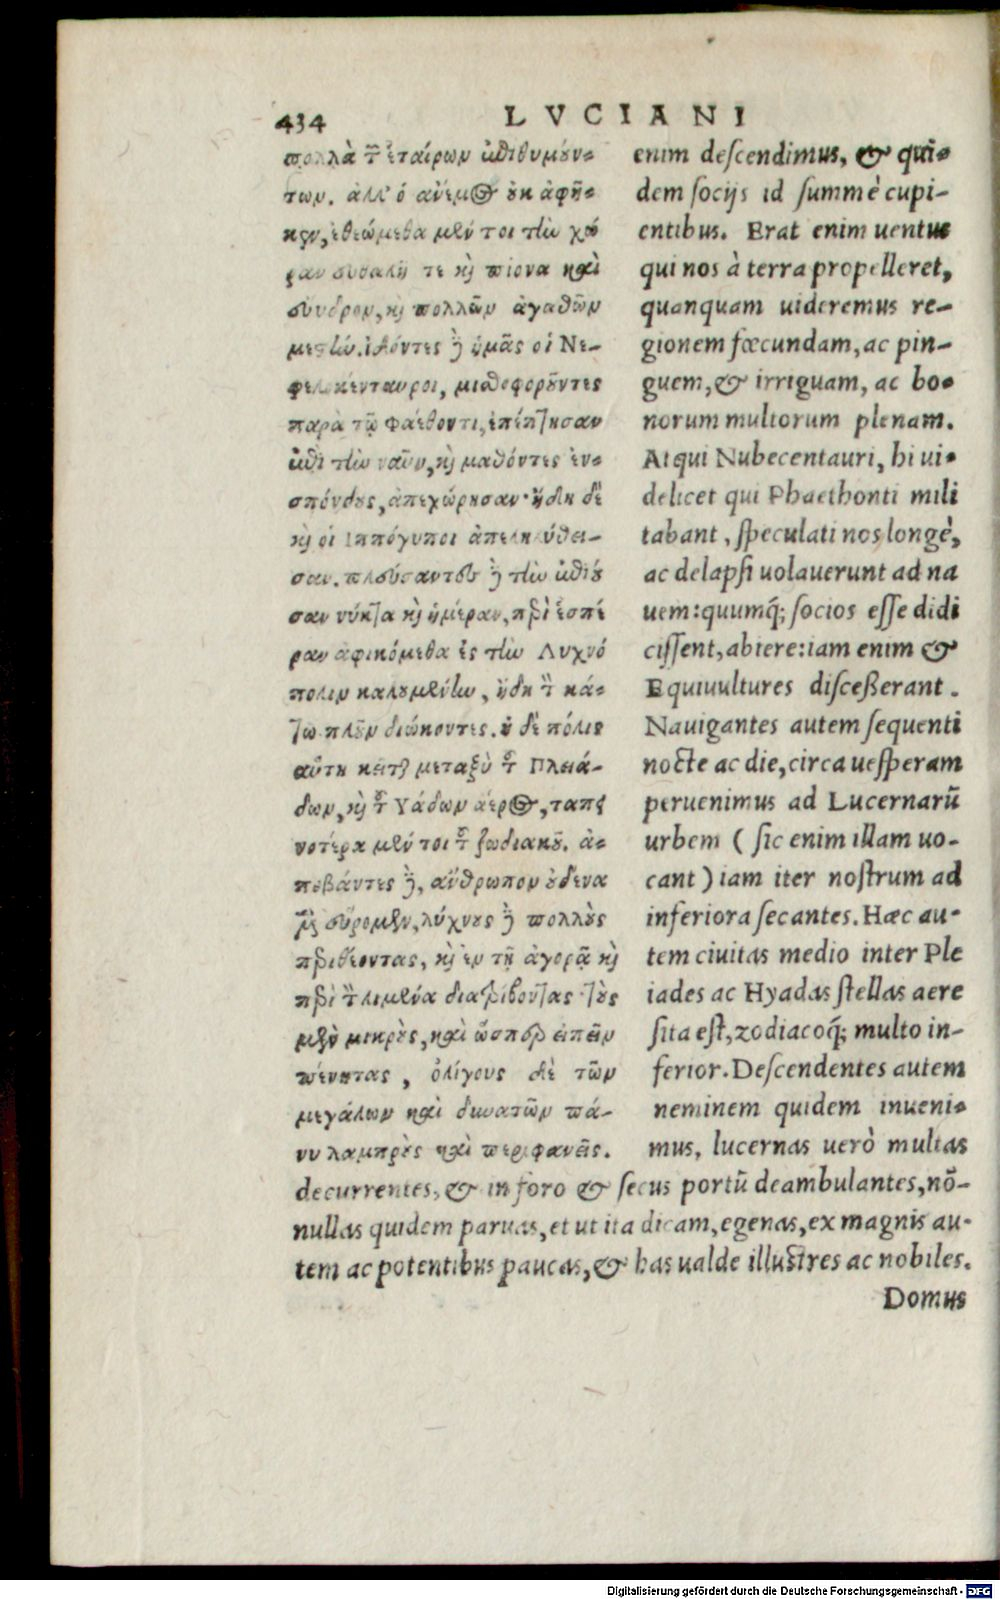 434 LVCIANI
πολλὰ τῶν ἑταίρων ἐπιθυμούν-
των. ἀλλ' ὁ ἄνεμος οὐκ ἀφῆ-
κεν, ἐθεώμεθα μέν τοι τὴν χώ
ραν εὐθαλῆ τε καὶ πίονα καὶ
εὔυδρον, καὶ πολλῶν ἀγαθῶν
μεστήν. ἰδόντες δ' ἡμᾶς οἱ Νε-
φελοκένταυροι, μισθοφοροῦντες
παρὰ τῷ Φαέθοντι, ἐπέπτησαν
ἐπὶ τὴν ναῦν, καὶ μαθόντες ἐν-
σπόνδους, ἀπεχώρησαν· ἤδη δὲ
καὶ οἱ Ιππόγυποι ἀπεληλύθει-
σαν. πλεύσαντες δὲ τὴν ἐπιοῦ
σαν νύκτα καὶ ἡμέραν, περὶ ἑσπέ
ραν ἀφικόμεθα ἐς τὴν Λυχνό
πολιν καλουμένην, ἤδη τὸν κά-
τω πλοῦν διώκοντες. ἡ δὲ πόλις
αὕτη κεῖται μεταξὺ τοῦ Πλειά-
δων, καὶ τοῦ Υάδων ἀέρος, ταπει
νοτέρα μέν τοι τοῦ ζωδιακοῦ. ἀ-
ποβάντες δὲ, ἄνθρωπον οὐδένα
μὲν εὕρομεν, λύχνους δὲ πολλοὺς
περιθέοντας, καὶ ἐν τῇ ἀγορᾷ καὶ
περὶ τὸν λιμένα διατρίβοντας· τοὺς
μὲν μικροὺς, καὶ ὥσπερ εἰπεῖν
πένητας, ὀλίγους δὲ τῶν
μεγάλων καὶ δυνατῶν πά-
νυ λαμπροὺς καὶ περιφανεῖς.
enim descendimus, & qui-
dem socijs id summè cupi-
entibus. Erat enim uentus
qui nos à terra propelleret,
quanquam uideremus re-
gionem fœcundam, ac pin-
guem, & irriguam, ac bo-
norum multorum plenam.
Atqui Nubecentauri, hi ui-
delicet qui Phaethonti mili
tabant, speculati nos longè,
ac delapsi uolauerunt ad na
uem: quumq́; socios esse didi
cissent, abiere: iam enim &
Equiuultures discesserant.
Nauigantes autem sequenti
nocte ac die, circa uesperam
peruenimus ad Lucernarū
urbem ( sic enim illam uo-
cant ) iam iter nostrum ad
inferiora secantes. Hæc au-
tem ciuitas medio inter Ple
iades ac Hyadas stellas aere
sita est, zodiacoq́; multo in-
ferior. Descendentes autem
neminem quidem inueni-
mus, lucernas uerò multas
decurrentes, & in foro & secus portū deambulantes, nō-
nullas quidem paruas, et ut ita dicam, egenas, ex magnis au-
tem ac potentibus paucas, & has ualde illustres ac nobiles.
Domus
Digitalisierung gefördert durch die Deutsche Forschungsgemeinschaft - DFG